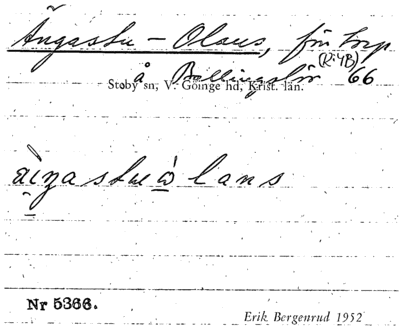 Ängastu - Olans, för torp
(Ri4B)
å Ballingslöv 66
Stoby sn, V. Göinge hd, Krist. län.
äiŋastuωlans
Nr 5366.
Erik Bergenrud 1952